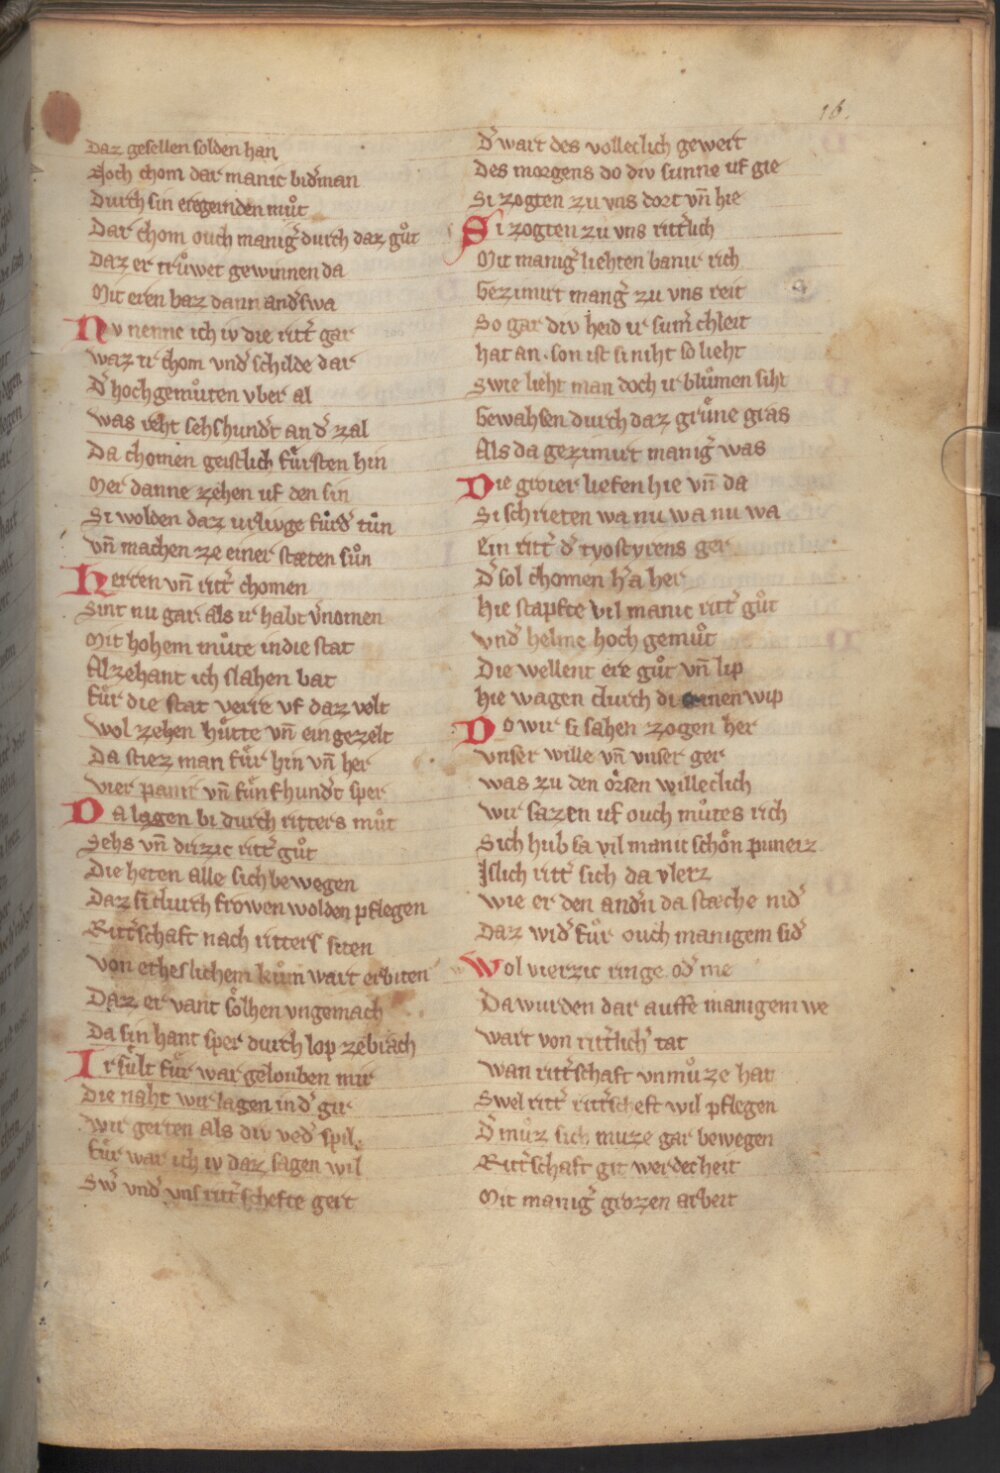 16.
Daz gesellen solden han
Noch chom dar manic bid͛man
Durch sin eregernden muͦt
Dar chom ouch manig͛ durch daz guͦt
Daz er truͦwet gewinnen da
Mit eren baz dann and͛swa
Nv nenne ich iv die ritt͛ gar
waz ir chom vnd͛ schilde dar
D͛ hochgemuͦten vber al
was reht sehshund͛t an d͛ zal
Da chomen geistlich fuͤrsten hin
Mer danne zehen uf den sin
Si wolden daz urliuge fuͤrd͛ tuͦn
vn̄ machen ze einer stæten suͦn
Herren vn̄ ritt͛ chomen
Sint nu gar als ir habt v͛nomen
Mit hohem muͦte in die stat
Alzehant ich slahen bat
fuͤr die stat verre vf daz velt
wol zehen huͤtte vn̄ ein gezelt
Da stiez man fuͤr hin vn̄ her
vier panir vn̄ fuͤnfhund͛t sper
Da lagen bi durch ritters muͦt
Sehs vn̄ drizic ritt͛ guͦt
Die heten alle sich bewegen
Daz si durch frowen wolden pflegen
Ritt͛schaft nach ritters siten
von etheslichem kuͦm wart erbiten
Daz er vant soͤlhen vngemach
Da sin hant sper durch lop zebrach
Ir suͤlt fuͤr war gelouben mir
Die naht wir lagen in d͛ gir
wir gerten als div ved͛ spil
fuͤr war ich iv daz sagen wil
Sw͛ vnd͛ vns ritt͛schefte gert
D͛ wart des volleclich gewert
Des morgens do div sunne uf gie
Si zogten zu vns dort vn̄ hie
Si zogten zu vns ritt͛lich
Mit manig͛ liehten banir rich
Gezimirt mang͛ zu vns reit
So gar div heid ir sum͛ chleit
hat an. son ist si niht so lieht
Swie lieht man doch ir bluͦmen siht
Gewahsen durch daz gruͤne gras
Als da gezimirt manig͛ was
Die givier liefen hie vn̄ da
Si schrieten wa nu wa nu wa
Ein ritt͛ d͛ tyostyrens ger
D͛ sol chomen h͛a her
Hie stapfte vil manic ritt͛ guͦt
vnd͛ helme hoch gemuͦt
Die wellent ere guͦt vn̄ lip
Hie wagen durch di nen wip
Do wir si sahen zogen her
vnser wille vn̄ vnser ger
was zu den oͤrsen willeclich
wir sazen uf ouch muͦtes rich
Sich hub sa vil manic schoͤn puneiz
Islich ritt͛ sich da vleiz
wie er den and͛n da stæche nid͛
Daz wid͛ fuͤr ouch manigem sid͛
Wol vierzic ringe od͛ me
Da wurden dar auffe manigem we
wart von ritt͛lich͛ tat
wan ritt͛schaft vnmuͦze hat
Swel ritt͛ ritt͛scheft wil pflegen
D͛ muͦz sich muze gar bewegen
Ritt͛schaft git werdecheit
Mit manig͛ grozen arbeit